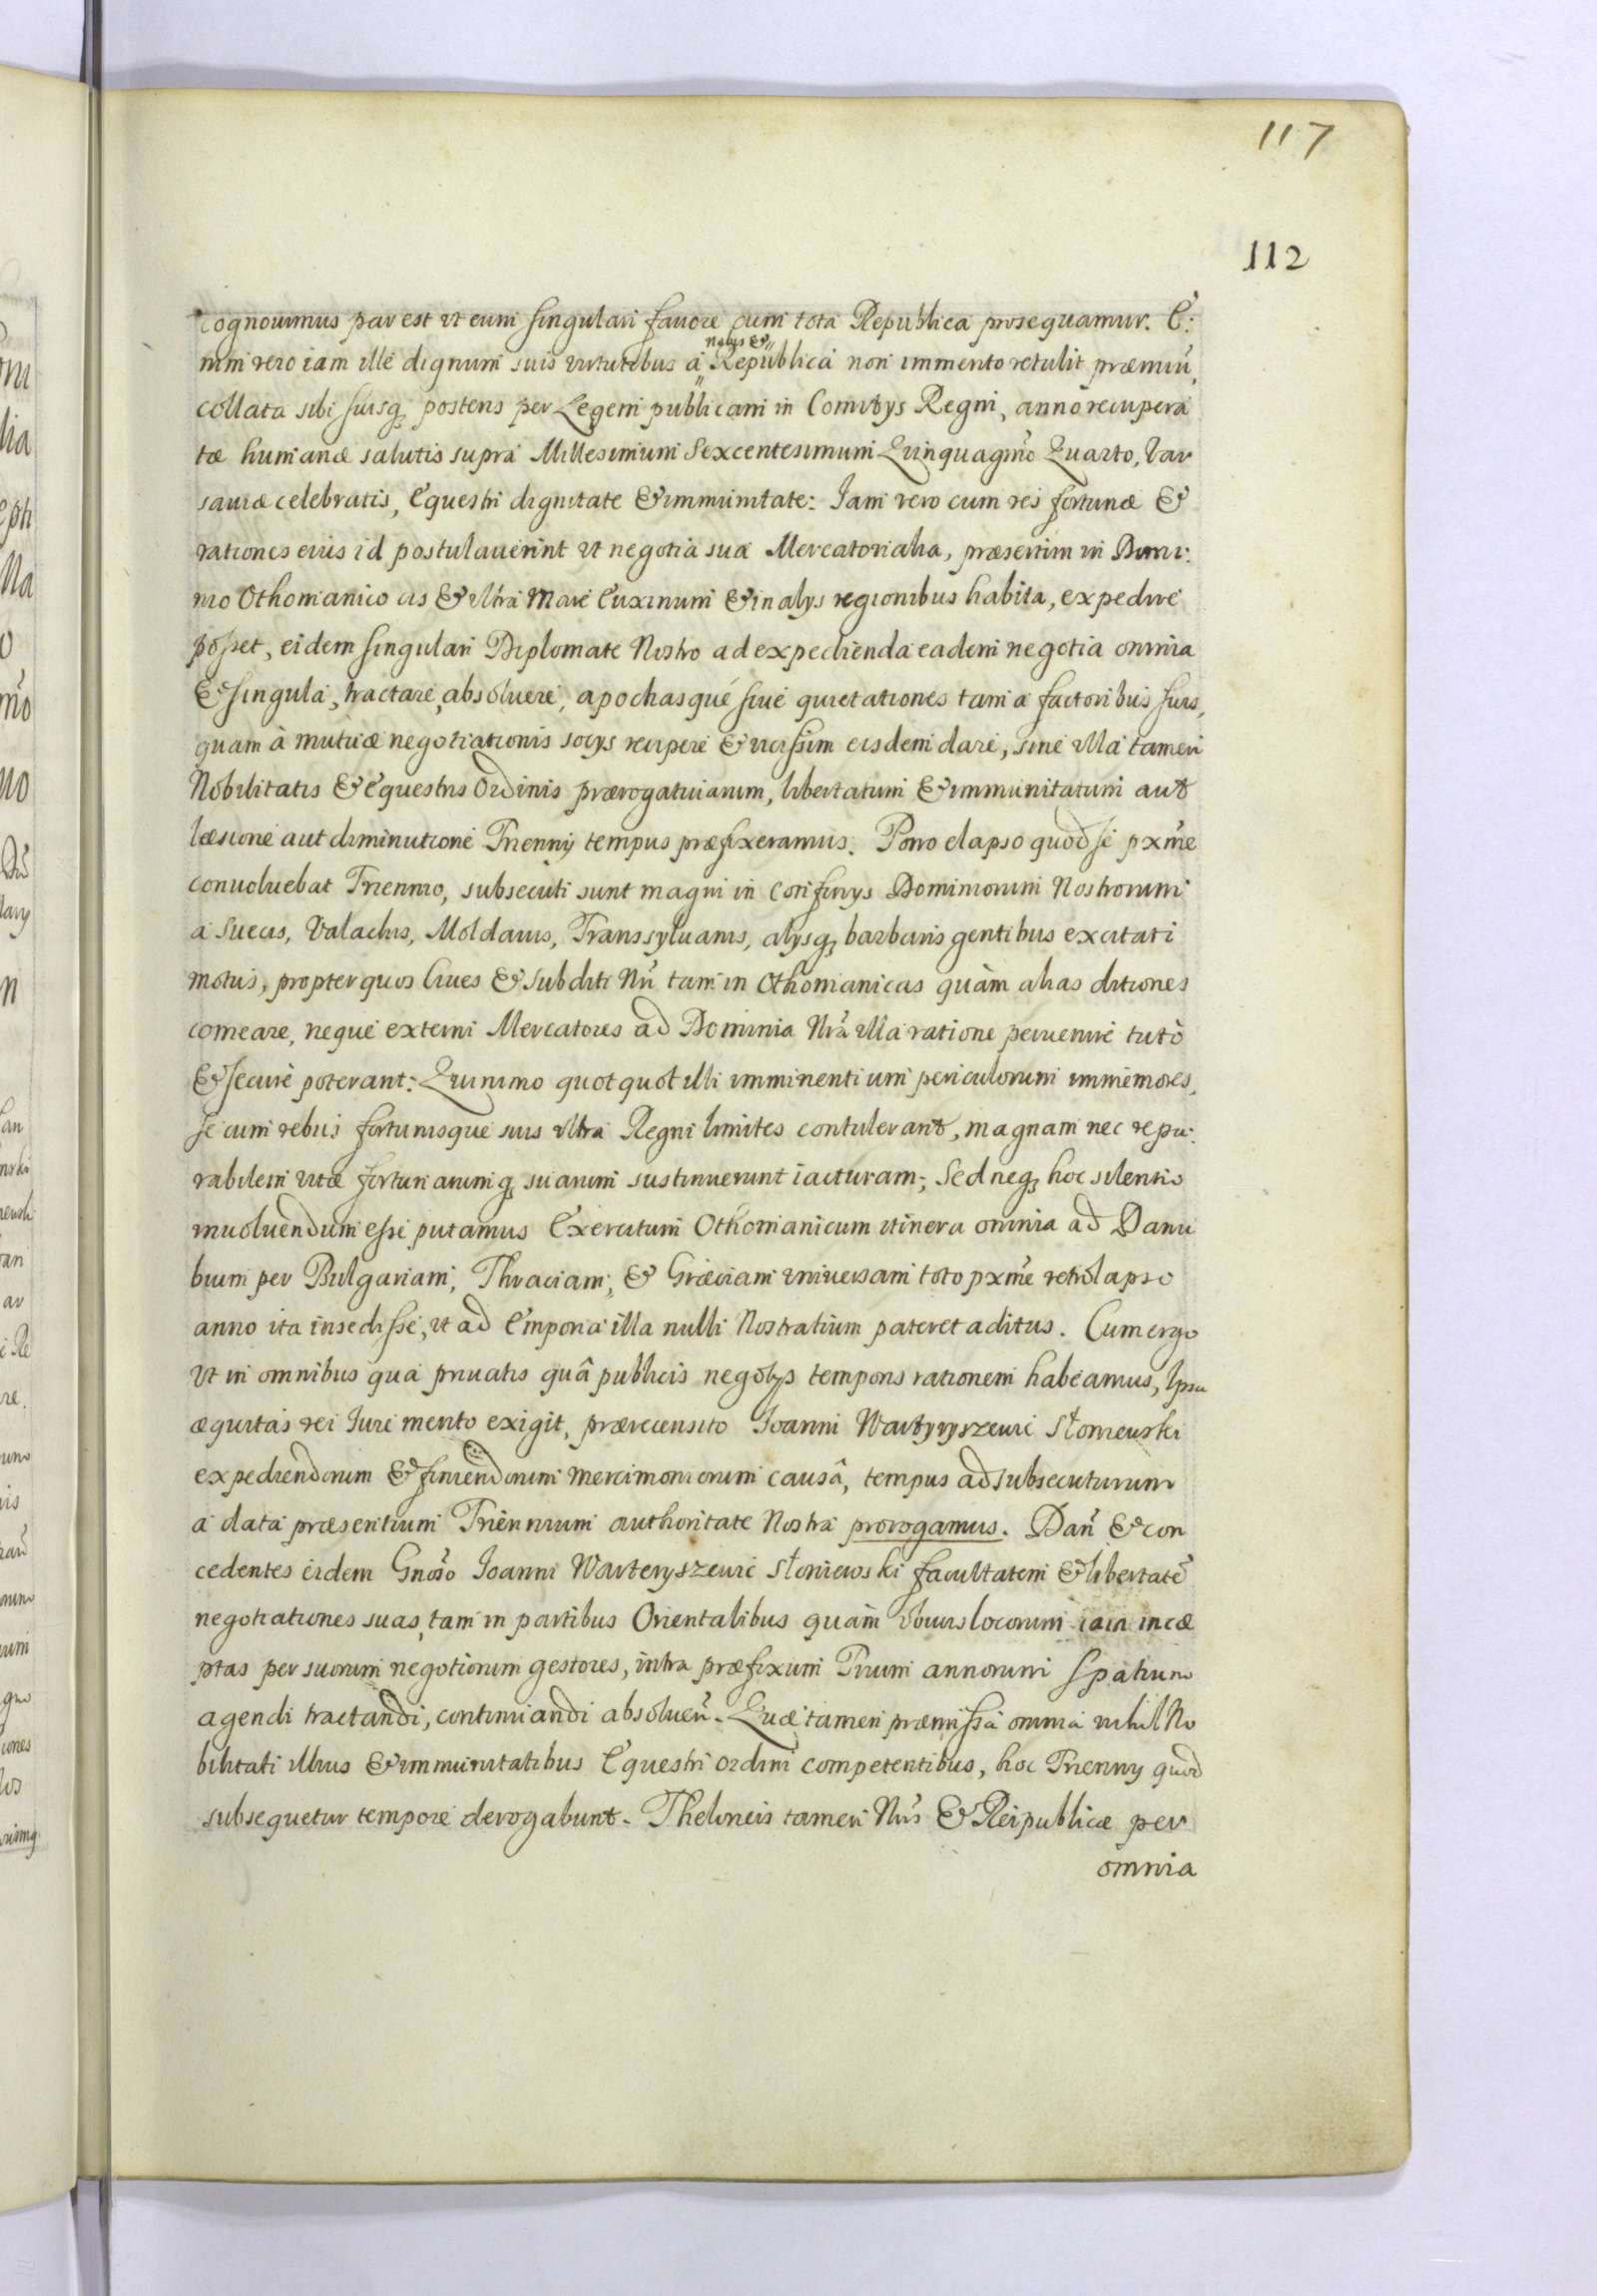 117
112
cognouimus par est vt eum singulari fauore cum tota Republica prosequamur. E:
nim vero iam ille dignum suis virtutibus à nobis & Republica non immerito retulit præmiũ,
collata sibi suisq; posteris per Legem publicam in Comitijs Regni, anno recupera
tæ humanæ salutis supra Millesimum Sexcentesimum Quinquagmõ Quarto, Var
sauiæ celebratis, Equestri dignitate & immunitate: Iam vero cum res fortunæ &
rationes eius id postulauerint vt negotia sua Mercatorialia, præsertim in Domi:
nio Othomanico cis & vltra Mare Euxinum & in alijs regionibus habita, expedire
posset, eidem singulari Diplomate Nostro ad expedienda eadem negotia omnia
& singula, tractare, absoluere, apochasqué siue quietationes tam a factoribus suis,
quam à mutuæ negotiationis socijs recipere & vicissim eisdem dare, sine vlla tamen
Nobilitatis & Equestris Ordinis prærogatiuarum, libertatum & immunitatum aut
læsione aut diminutione Triennij tempus præfixeramus. Porro elapso quod se pxmẽ
conuoluebat Triennio, subsecuti sunt magni in confinijs Dominiorum Nostrorum
a Suecis, Valachis, Moldauis, Transsyluanis, alijsq; barbaris gentibus excitati
motus, propter quos Ciues & subditi Nrĩ tam in Othomanicas quàm alias ditiones
comeare, neque externi Mercatores ad Dominia Nrã vlla ratione peruenire tutò
& secure poterant: Quinimo quotquot illi imminentium periculorum immemores,
se cum rebus fortunisque suis vltra Regni limites contulerant, magnam nec repa:
rabilem vitæ fortunarumq; suarum sustinuerunt iacturam; Sed neq; hoc silentio
inuoluendum esse putamus Exercitum Othomanicum itinera omnia ad Danu
bium per Bulgariam, Thraciam, & Græciam vniuersam toto pxmẽ retrolapso
anno ita insedisse, vt ad Emporia illa nulli Nostratium pateret aditus. Cum ergo
vt in omnibus qua priuatis quâ publicis negotijs temporis rationem habeamus, Ipsa
æquitas rei Iure merito exigit, prærecensito Ioanni Wartyryszewic Słoniewski
expediendorum & finiendorum mercimoniorum causâ, tempus ad subsecuturum
a data præsentium Triennium authoritate Nostra prorogamus. Dañ & con
cedentes eidem Gnõso Ioanni Warteryszewic Słoniewski facultatem & libertatẽ
negotiationes suas, tam in partibus Orientalibus quàm vbiuis locorum iam incæ
ptas per suorum negotiorum gestores, intra præfixum Trium annorum spatium
agendi tractandi, continuandi absolueñ. Quæ tamen præmissa omnia nihil No
bilitati illius & immunitatibus Equestri ordini competentibus, hoc Triennij quod
subsequetur tempore derogabunt. Theloneis tamen Nrĩs & Reipublicæ per
omnia